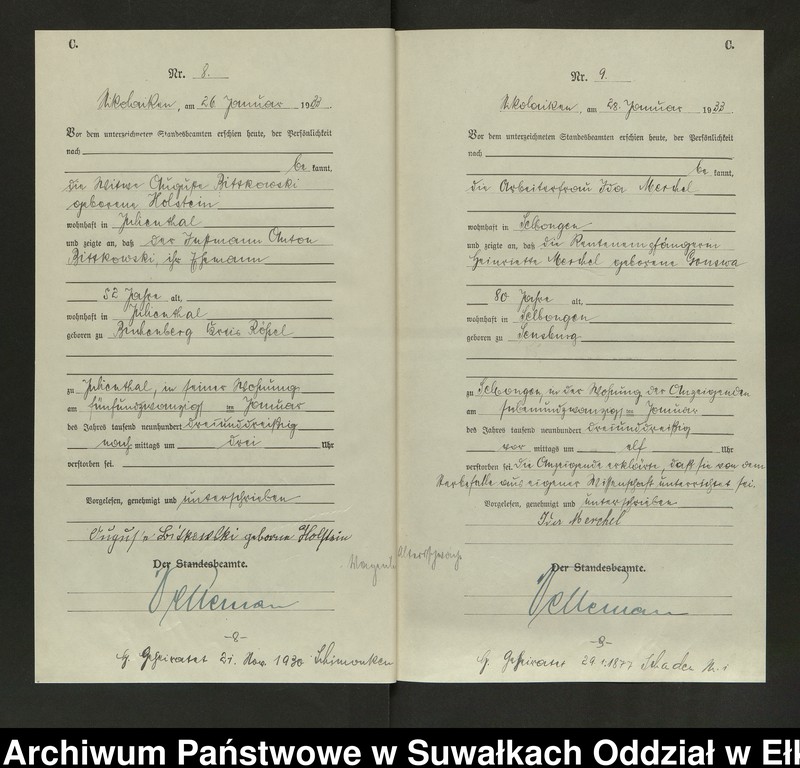 C.
Nr. 8.
Nikolaiken, am 26. Januar 1933.
Vor dem unterzeichneten Standesbeamten erschien heute, der Persönlichkeit
nach
be kannt,
die Witwe Auguste Bittkowski
geborene Holstein
wohnhaft in Julienthal
und zeigte an, daß der Instmann Anton
Bittkowski, ihr Ehemann
52 Jahre alt,
wohnhaft in Julienthal
geboren zu Kreis Rößel
zu Julienthal, in seiner Wohnung
am fünfundzwanzigsten Januar
des Jahres tausend neunhundert dreiunddreißig
nach mittags um drei Uhr
verstorben sei.
Vorgelesen, genehmigt und unterschrieben
geborne Holstein
Der Standesbeamte.
-8-
G. Geheiratet 21. Nov. 1930 Schimonken
C.
Nr. 9.
Nikolaiken, am 28. Januar 1933.
Vor dem unterzeichneten Standesbeamten erschien heute, der Persönlichkeit
nach
be kannt,
die Arbeiterfrau Ida Merchel
wohnhaft in Selbongen
und zeigte an, daß die Rentenempfängerin
Heinriette Merchel geborene Gonswa
80 Jahre alt,
wohnhaft in Selbongen
geboren zu Sensburg
zu Selbongen, in der Wohnung der Anzeigenden
am siebenundzwanzigsten Januar
des Jahres tausend neunhundert dreiunddreißig
vor mittags um elf Uhr
verstorben sei. Die Anzeigende erklärte, daß sie von dem
Sterbefalle aus eigener Wissenschaft unterrichtet sei.
Vorgelesen, genehmigt und unterschrieben
Ida Merchel
Altersschwäche
Der Standesbeamte.
-9-
G. Geheiratet 29.1.1877
Archiwum Państwowe w Suwałkach Oddział w Ełk